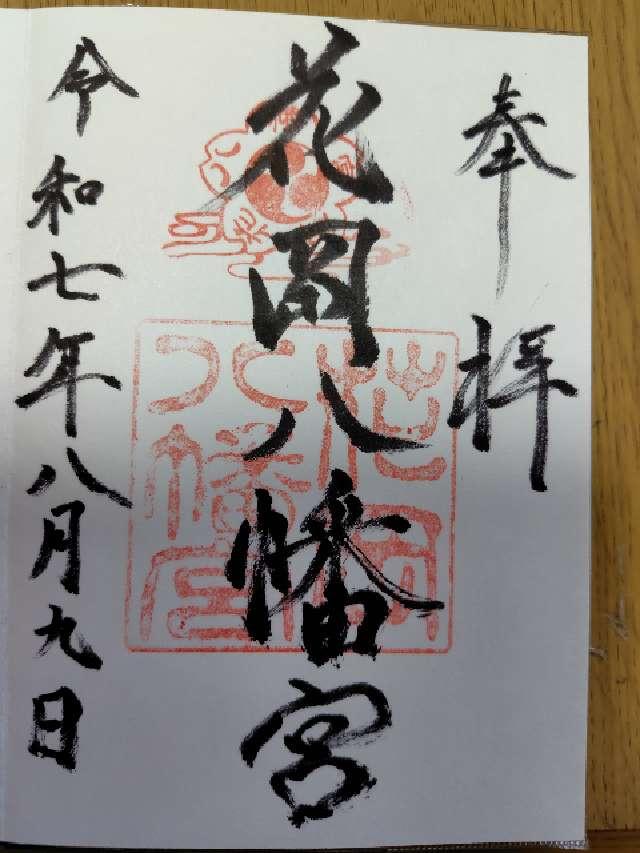 奉拝
花岡八幡宮
花岡八幡宮
令和七年八月九日